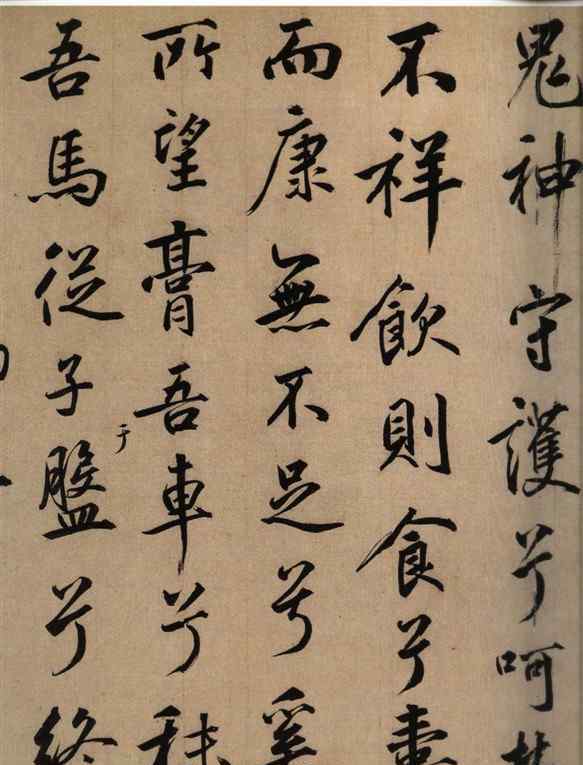 鬼神守護兮呵
不祥飲則食兮壽
而康無不足兮奚
所望膏吾車兮秣
吾馬從子于盤兮終